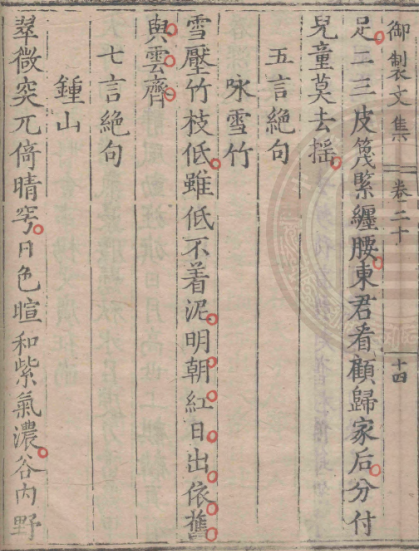 御製文集 卷二十 十四
足二三皮篾緊纏腰東君看顧歸家后分付
兒童莫去摇
五言絶句
咏雪竹
雪壓竹枝低雖低不着泥明朝紅日出依舊
與雲齊
七言絶句
鍾山
翠微突兀倚晴穹日色暄和紫氣濃谷内野